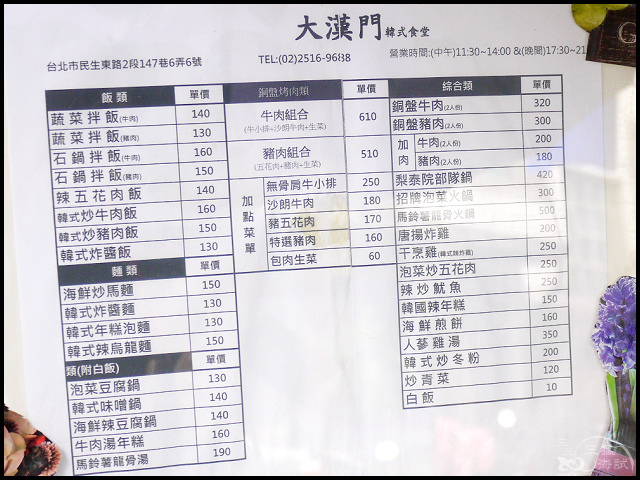 大漢門 韓式食堂
台北市民生東路2段147巷6弄6號
TEL:(02)2516-9688
營業時間:(中午)11:30~14:00 &(晚間)17:30~21
飯 類 單價
蔬菜拌飯(牛肉) 140
蔬菜拌飯(豬肉) 130
石鍋拌飯(牛肉) 160
石鍋拌飯(豬肉) 150
辣五花肉飯 140
韓式炒牛肉飯 160
韓式炒豬肉飯 150
韓式炸醬飯 130
麵 類 單價
海鮮炒馬麵 150
韓式炸醬麵 130
韓式年糕泡麵 130
韓式辣烏龍麵 150
類(附白飯) 單價
泡菜豆腐鍋 130
韓式味噌鍋 140
海鮮辣豆腐鍋 140
牛肉湯年糕 160
馬鈴薯龍骨湯 190
銅盤烤肉類 單價
牛肉組合
(牛小排+沙朗牛肉+生菜) 610
豬肉組合
(五花肉+豬肉+生菜) 510
加點菜單
無骨肩牛小排 250
沙朗牛肉 180
豬五花肉 170
特選豬肉 160
包肉生菜 60
綜合類 單價
銅盤牛肉(2人份) 320
銅盤豬肉(2人份) 300
加肉
牛肉(2人份) 200
豬肉(2人份) 180
梨泰院部隊鍋 420
招牌泡菜火鍋 300
馬鈴薯龍骨火鍋 500
唐揚炸雞 200
干烹雞(韓式辣炸雞) 250
泡菜炒五花肉 250
辣炒魷魚 250
韓國辣年糕 150
海鮮煎餅 160
人蔘雞湯 350
韓式炒冬粉 200
炒青菜 120
白飯 10